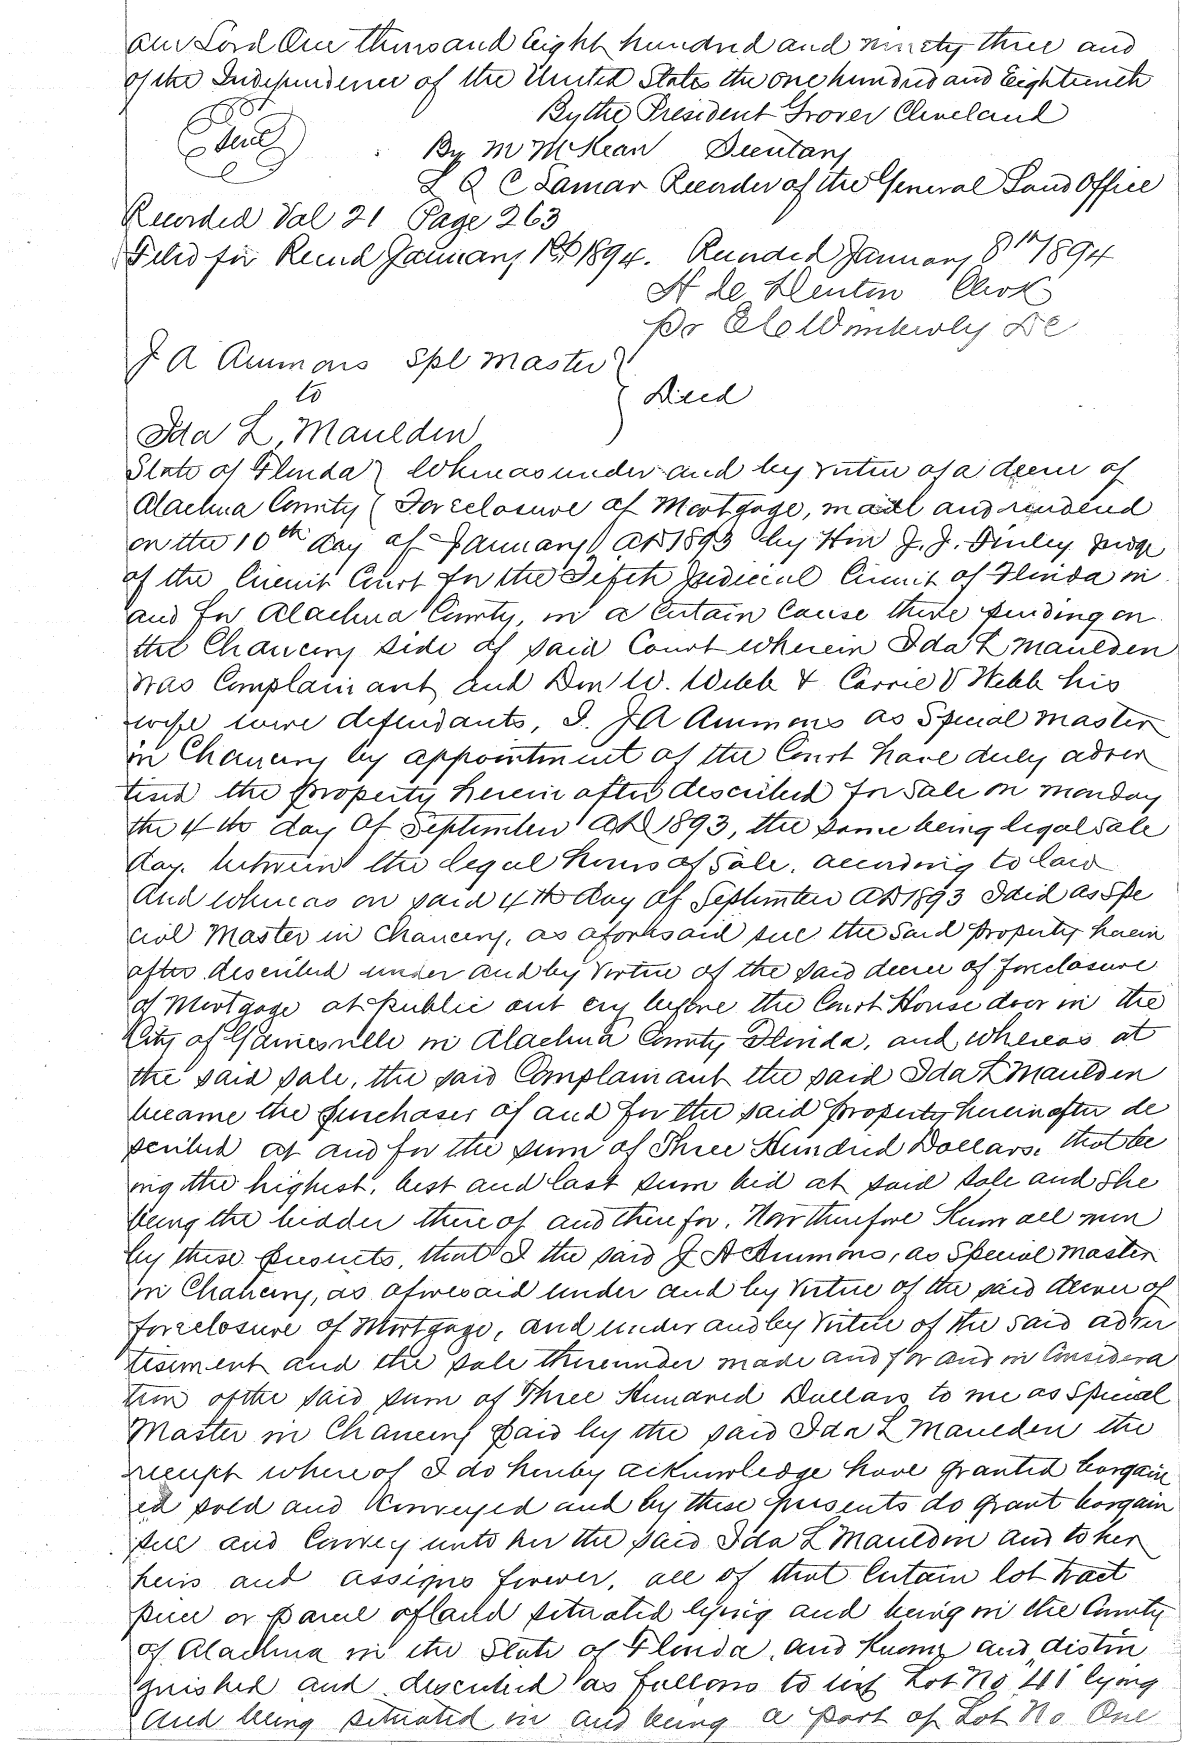 our Lord One thousand Eight hundred and ninety three and
of the Independence of the United States the one hundred and Eighteenth
By the President Grover Cleveland
Seal
By M McKean Secretary
L Q C Lamar Recorder of the General Land Office
Recorded Vol 21 Page 263
Filed for Record January 1st 1894. Recorded January 8th 1894
Clerk
pr E C Wimberly DC
J A Ammons Spl Master
to } Deed
Ida L, Maulden
State of Florida } Whereas under and by virtue of a decree of
Alachua County { Foreclosure of Mortgage, made and rendered
on the 10th day of January AD 1893 by Hon J. J. Finley Judge
of the Circuit Court for the Fifth Judicial Circuit of Florida in
and for Alachua County, in a Certain Cause there pending on
the Chancery side of said Court wherein Ida L Maulden
was Complainant and Don W. Webb & Carrie V Webb his
wife were defendants, I. J A Ammons as Special Master
in Chancery by appointment of the Court have duly adver
tised the property herein after described for Sale on monday
the 4th day Of September AD 1893, the same being legal sale
day. between the legal hours of Sale. according to law
And whereas on said 4th day Of September AD 1893 I did as Spe
cial Master in Chancery, as aforesaid sell the said property herein
after described under and by virtue of the said decree of foreclosure
of Mortgage at public out cry before the Court House door in the
City of Gainesville in Alachua County Florida, and whereas at
the said sale, the said Complainant the said Ida L Maulden
became the purchaser of and for the said property hereinafter de
scribed at and for the sum of Three Hundred Dollars. that be
ing the highest, best and last sum bid at said sale and She
being the bidder there of and there for. Now therefore Know all men
by these presents, that I the said J A Ammons, as Special Master
in Chancery, as aforesaid under and by virtue of the said decree of
foreclosure of Mortgage, and under and by virtue of the said adver
tisement and the sale thereunder made and for and in Considera
tion of the said sum of Three Hundred Dollars to me as Special
Master in Chancery paid by the said Ida L Maulden the
receipt where of I do hereby acknowledge have granted bargain
ed sold and Conveyed and by these presents do grant bargain
sell and Convey unto her the said Ida L Mauldon and to her
heirs and assigns forever, all of that Certain lot tract
piece or parcel of land situated lying and being in the County
of Alachua in the State of Florida, and Known and distin
guished and described as follows to wit Lot No 41 lying
and being situated in and being a part of Lot No One